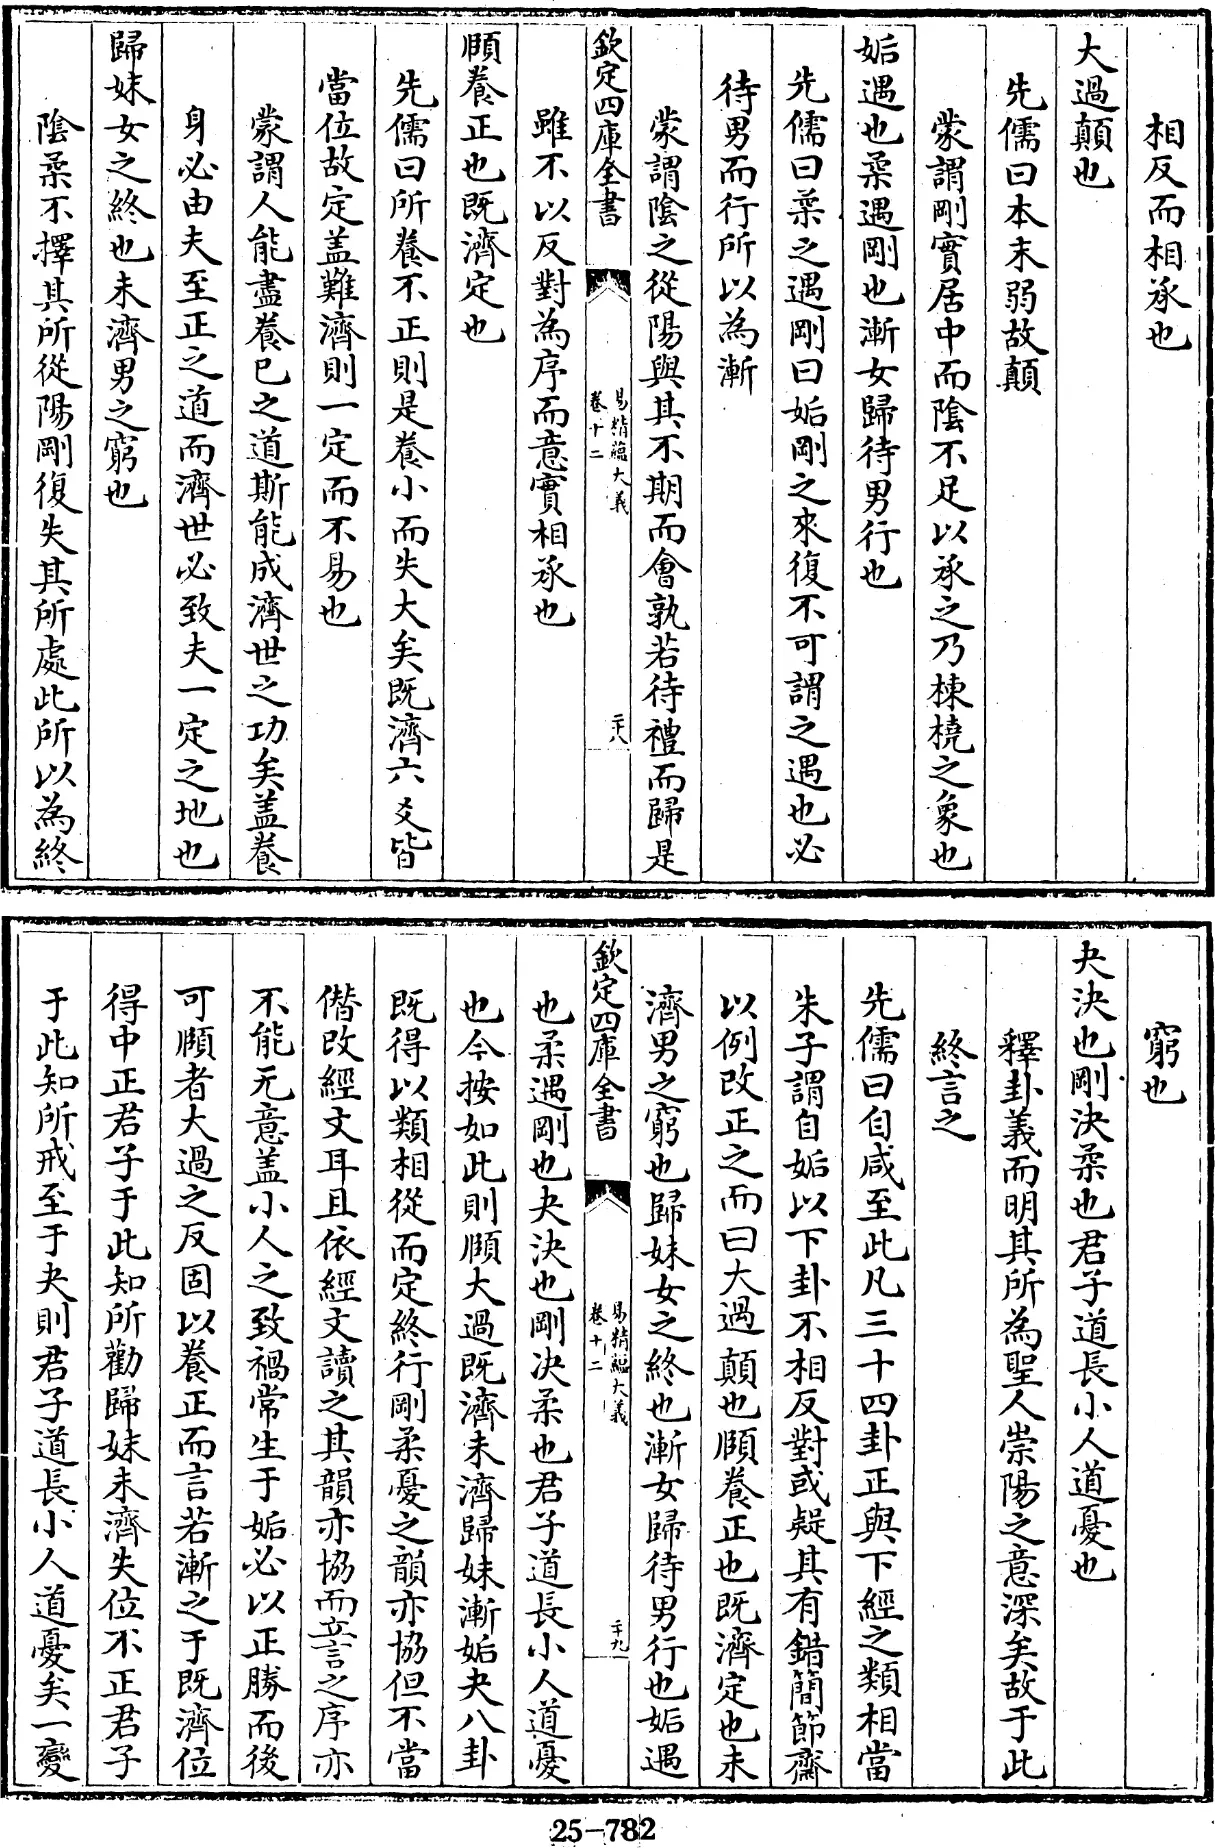 相反而相承也
大過顛也
先儒曰本末弱故顛
蒙謂剛實居中而陰不足以承之乃棟橈之象也
姤遇也柔遇剛也漸女歸待男行也
先儒曰柔之遇剛曰姤剛之來復不可謂之遇也必
待男而行所以為漸
蒙謂陰之從陽與其不期而會孰若待禮而歸是
欽定四庫全書
易精蘊大義
卷十二
二十八
雖不以反對為序而意實相承也
頤養正也既濟定也
先儒曰所養不正則是養小而失大矣既濟六爻皆
當位故定盖難濟則一定而不易也
蒙謂人能盡養已之道斯能成濟世之功矣盖養
身必由夫至正之道而濟世必致夫一定之地也
歸妹女之終也未濟男之窮也
陰柔不擇其所從陽剛復失其所處此所以為終
窮也
夬決也剛決柔也君子道長小人道憂也
釋卦義而明其所為聖人崇陽之意深矣故于此
終言之
先儒曰自咸至此凡三十四卦正與下經之類相當
朱子謂自姤以下卦不相反對或疑其有錯簡節齋
以例改正之而曰大過顛也頤養正也既濟定也未
濟男之窮也歸妹女之終也漸女歸待男行也姤遇
欽定四庫全書
易精蘊大義
卷十二
二十九
也柔遇剛也夬決也剛決柔也君子道長小人道憂
也今按如此則頤大過既濟未濟歸妹漸姤夬八卦
既得以類相從而定終行剛柔憂之韻亦協但不當
僭改經文耳且依經文讀之其韻亦協而立言之序亦
不能无意盖小人之致禍常生于姤必以正勝而後
可頤者大過之反固以養正而言若漸之于既濟位
得中正君子于此知所勸歸妹未濟失位不正君子
于此知所戒至于夬則君子道長小人道憂矣一變
25-782